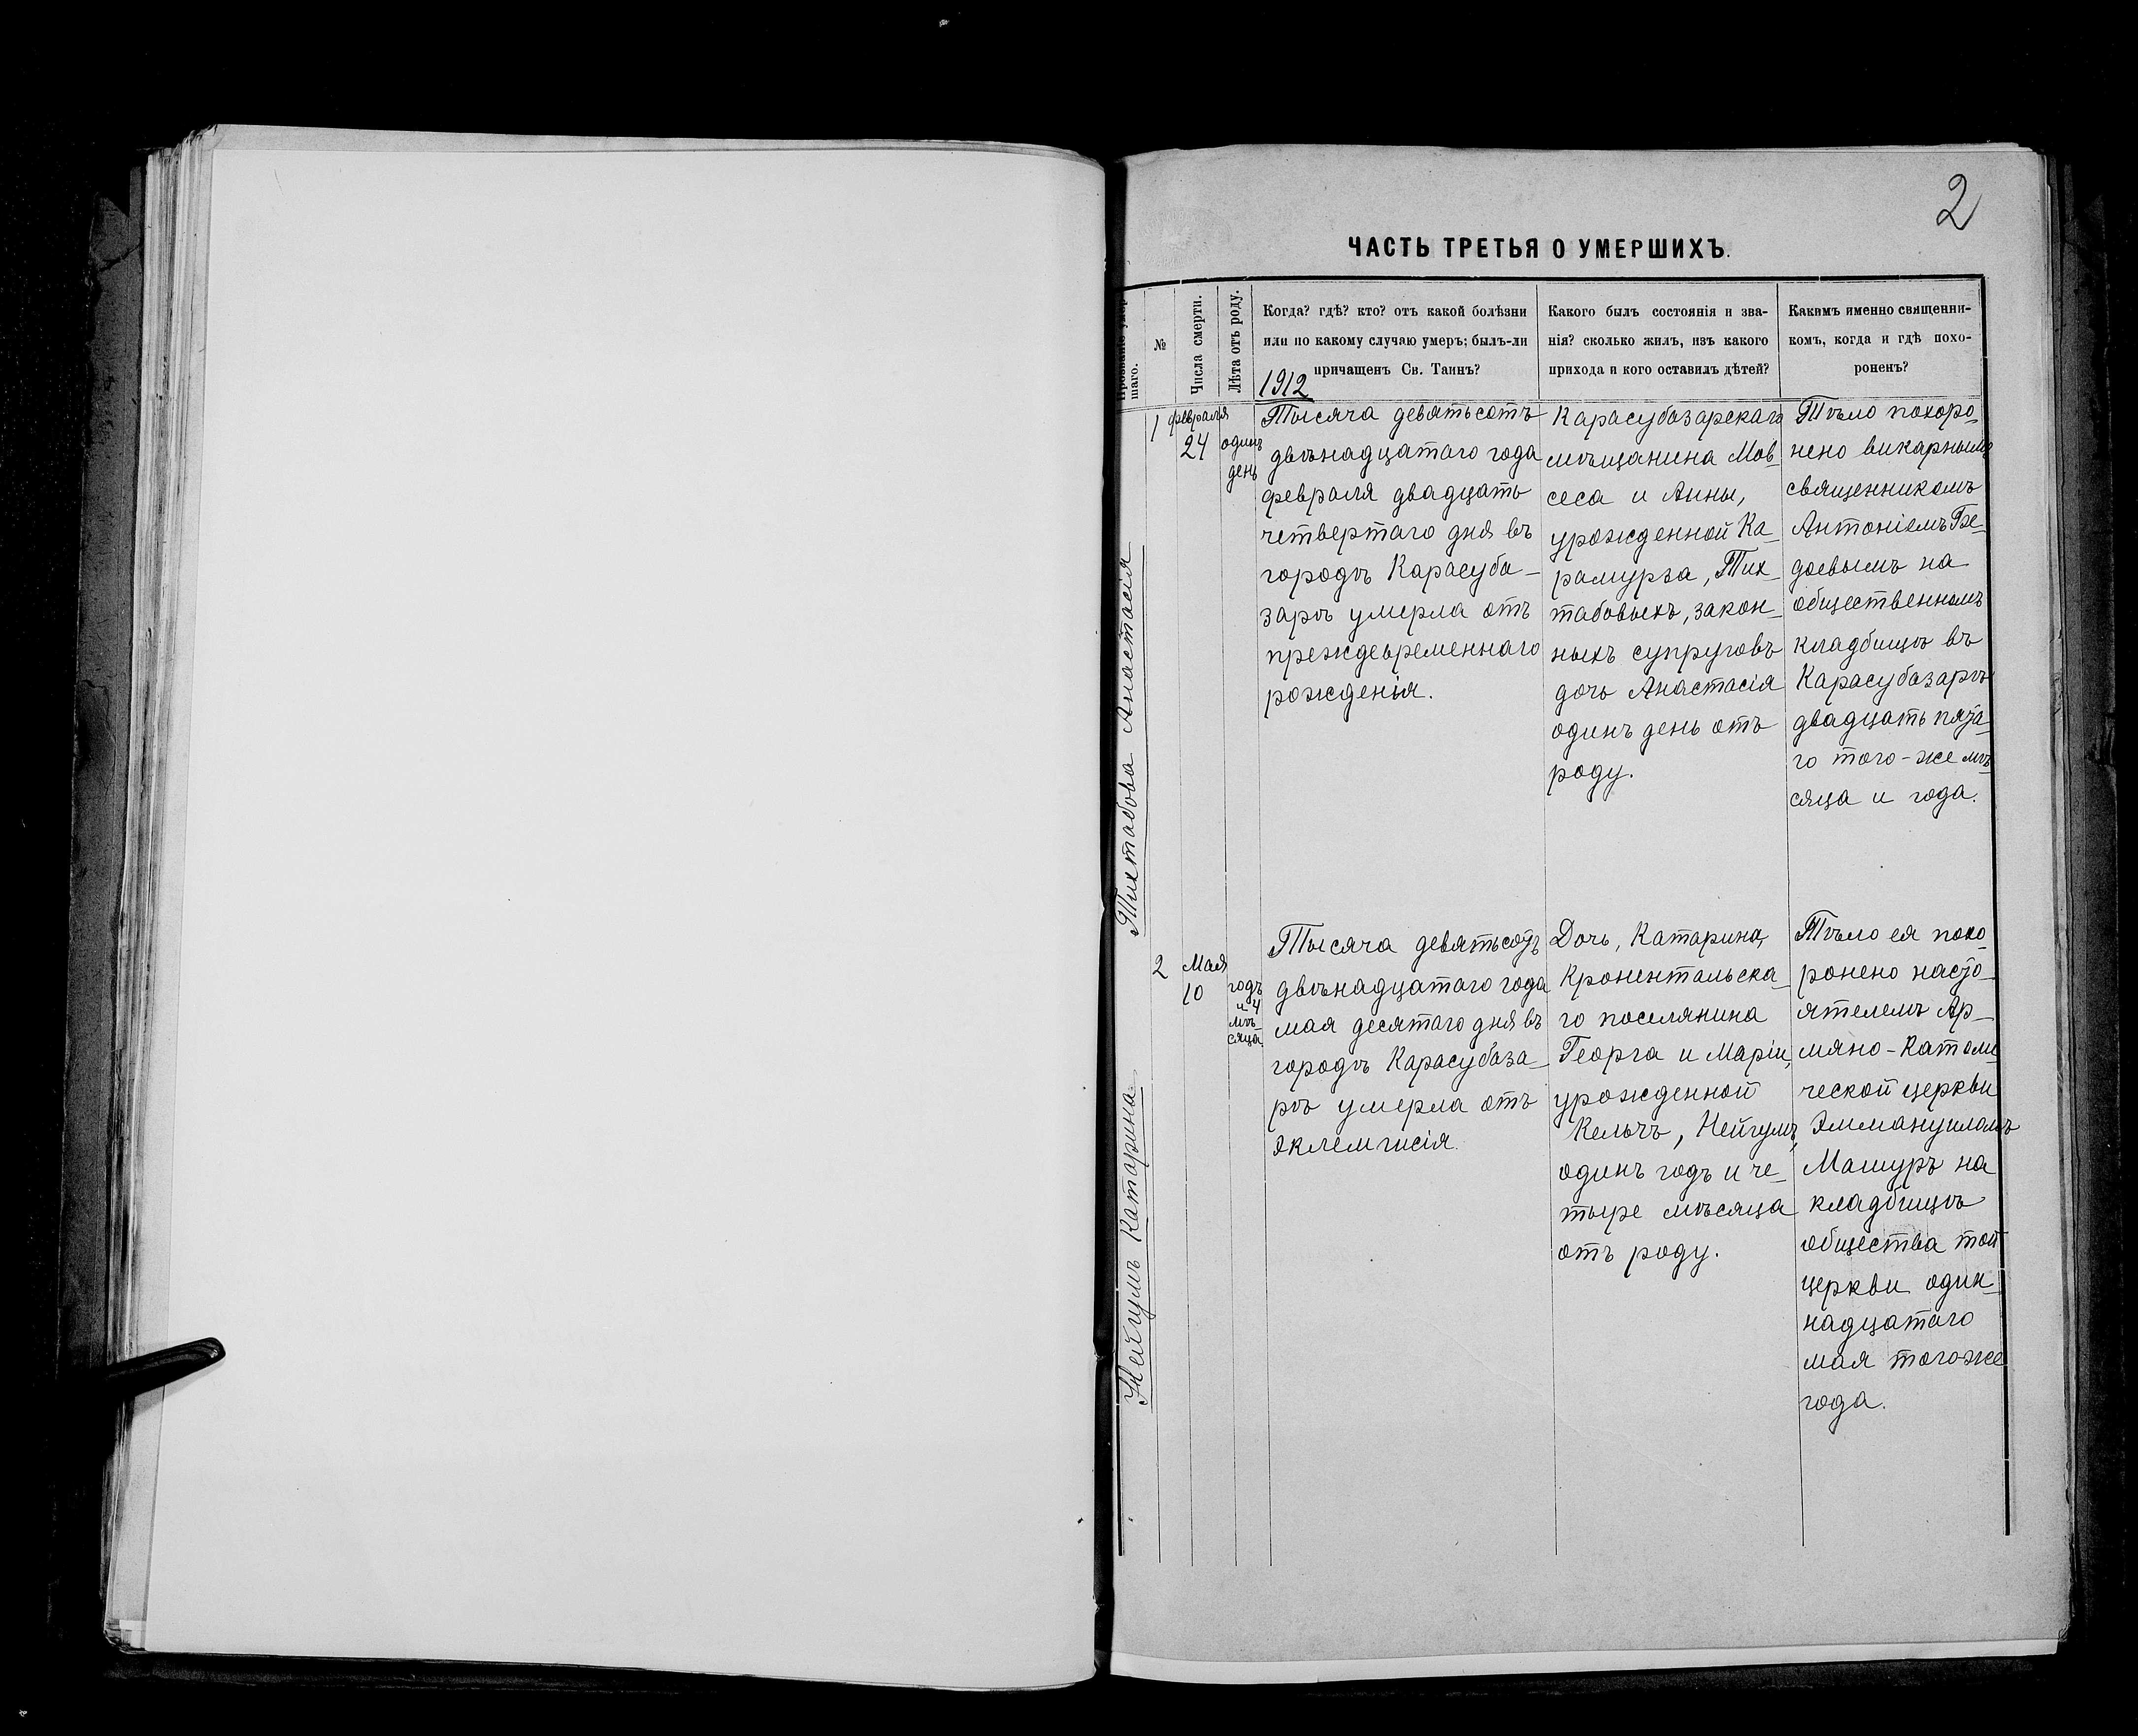 2
ЧАСТЬ ТРЕТЬЯ О УМЕРШИХЪ.
шаго.
№
Числа смерти.
Лѣта отъ роду.
Когда? гдѣ? кто? отъ какой болѣзни
или по какому случаю умеръ; былъ-ли
причащенъ Св. Таинъ?
1912
Какого былъ состоянія и зва-
нія? сколько жилъ, изъ какого
прихода и кого оставилъ дѣтей?
Какимъ именно священни-
комъ, когда и гдѣ похо-
роненъ?
Тихтабова Анастасія
1
февраля
24
одинъ
день
Тысяча девятьсотъ
двѣнадцатаго года
февраля двадцать
четвертаго дня въ
городѣ Карасуба-
зарѣ умерла отъ
преждевременнаго
рожденія.
Карасубазарскаго
мѣщанина Мов-
сеса и Анны,
урожденной Ка-
рамурза, Тих-
табовыхъ, закон-
ныхъ супруговъ
дочь Анастасія
одинъ день отъ
роду.
Тѣло похоро-
нено викарнымъ
священникомъ
Антоніемъ
доевымъ на
общественномъ
кладбищѣ въ
Карасубазарѣ
двадцать пята-
го того-же мѣ-
сяца и года.
Нейгумъ Катарина
2
Мая
10
годъ
и 4
мѣ-
сяца.
Тысяча девятьсотъ
двѣнадцатаго года
мая десятаго дня въ
городѣ Карасубаза-
рѣ умерла отъ
эклемпсія.
Дочь, Катарина,
Кронентальска-
го поселянина
Георга и Маріи,
урожденной
Кельчъ, Нейгумъ,
одинъ годъ и че-
тыре мѣсяца
отъ роду.
Тѣло ея похо-
ронено насто-
ятелемъ Ар-
мяно-Католи
ческой церкви
Эммануиломъ
Машуръ на
кладбищѣ
общества той
церкви один-
надцатаго
мая того-же
года.